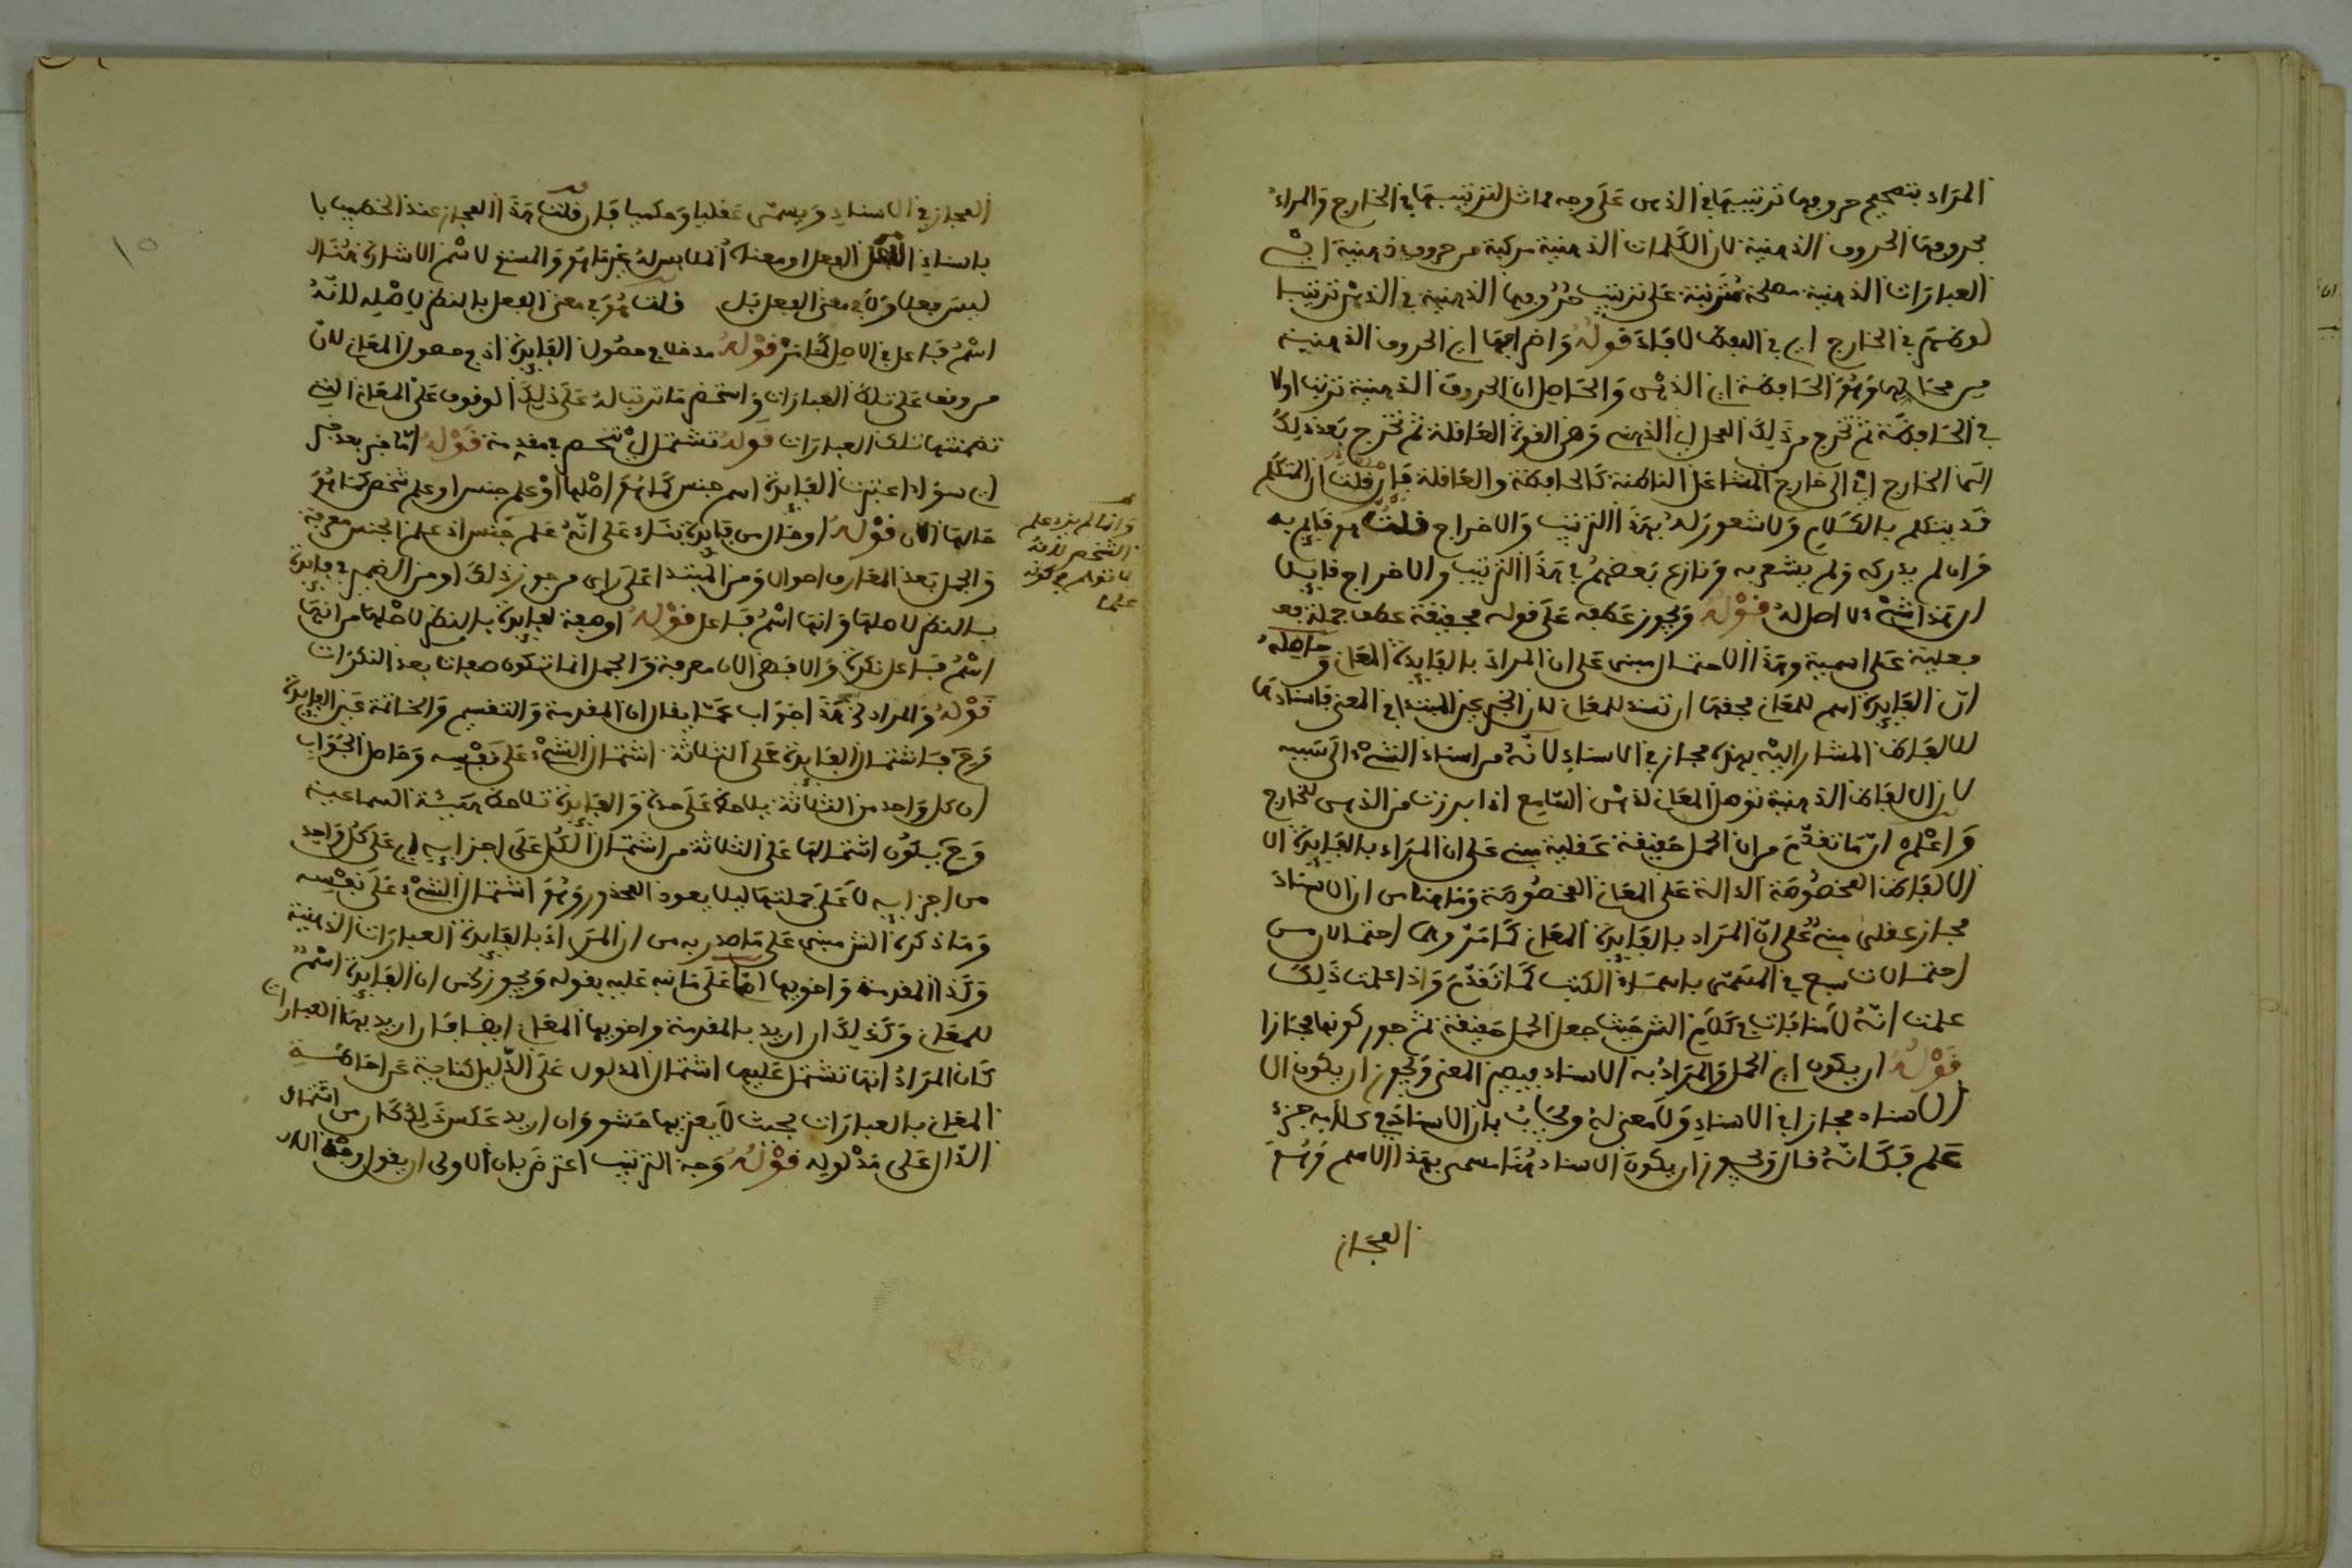 المراد بتصحيح حروفها ترتيبها في الذهن على وجه مماثل لترتيبها في الخارج والمراد
بحروفها الحروف الذهنية لان الكلمات الذهنية مركبة من حروف ذهنية اي
العبارات الذهنية مصححة مترتبة على ترتيب حروفها الذهنية في الذهن ترتيبا
في الخارج اي في اللفظ لافاد قوله واخراجها اي الحروف الذهنية
من محالها وهو الحافظة اي الذهن والحاصل ان الحروف الذهنية ترتب اولا
في الحافظة ثم تخرج من ذلك المحل الى الذهن وهي القوة العاقلة ثم تخرج بعد ذلك
الى الخارج اي الى خارج المشاعر الباطنة كالحافظة والعاقلة فان قلت ان المتكلم
قد يتكلم بالكلام ولا شعور له بهذا الترتيب والاخراج قلت هو قايم به
وان لم يدركه ولم يشعر به ونازع بعضهم في هذا الترتيب والاخراج قايلا
ان هذا شيء لا اصل له قوله ويجوز عطفه على قوله مجففة عطف جملة
فعلية على اسمية وهذا الاحتمال مبني على ان المراد بالفايدة المعاني وحاصله
ان الفايدة اسم للمعاني فحقها ان تسند للمعاني لان الخبر عين المبتدا في المعنى فاسنادها
للالفاظ المشار اليه بهذه مجاز في الاسناد لانه من اسناد الشيء الى سببه
لان الالفاظ الذهنية توصل المعاني لذهن السامع اذا برزت من الذهن للخارج
واعلم ان ما تقدم من ان الحمل حقيقة عقلية مبني على ان المراد بالفايدة
الالفاظ المخصوصة الدالة على المعاني المخصوصة وما هنا من ان الاسناد
مجاز عقلي مبني على ان المراد بالفايدة المعاني كما مر وهما احتمالان من
احتمالات سبع في المسمى باسماء الكتب كما تقدم واذا علمت ذلك
علمت انه لا منافاة في كلام الشرح حيث جعل الحمل حقيقة ثم جوز كونها مجازا
قوله ان يكون اي الحمل والمراد به الاسناد فيصير المعنى ويجوز ان يكون
الاسناد مجازا في الاسناد ولا معنى له ويجاب بان الاسناد في كلامه جزء
علم فكانه قال ويجوز ان يكون الاسناد هنا مسمى بهذا الاسم وهو
المجاز
المجاز في الاسناد ويسمى عقليا وحكميا فان قلت هذا المجاز عند الخطيب
باسناد الفعل او معناه الملابس له غير ما هو والمسند لاسم الاشارة هنا
ليس فعلا ولا في معنى الفعل قلت هو في معنى الفعل بالنظر لاصله لانه
اسم فاعل في الاصل كما مر قوله مدخلا في حصول الفايدة اي في حصول المعاني لان
من وقف على تلك العبارات واستحضر ما ترتب له على ذلك الوقوف على المعاني التي
تضمنتها تلك العبارات قوله تشتمل اي تنحصر في مقدمة قوله اما خبر بعد خبر
اي سواء اعتبرت الفايدة اسم جنس كما هو اصلها او علم جنس او علم شخص كما هو
حالها الان قوله او حال من فايدة بناء على انه علم جنس اذ علم الجنس معرفة
والجمل بعد المعارف احوال ومن المبتدا على راي من جوز ذلك او من الضمير في فايدة
بالنظر لاصلها وانها اسم فاعل قوله او صفة لفايدة بالنظر لاصلها من انها
اسم فاعل نكرة والا فهي الان معرفة والجمل انما تكون صفات بعد النكرات
قوله والمراد هذا جواب عما يقال ان المقدمة والتقسيم والخاتمة عين الفايدة
وح فاشتمال الفايدة على الثلاثة اشتمال الشيء على نفسه وحاصل الجواب
ان كل واحد من الثلاثة يلاحظ على حدة والفايدة تلاحظ هيئة اجتماعية
وح يكون اشتمالها على الثلاثة من اشتمال الكل على اجزايه اي على كل واحد
من اجزايه لا على جملتها ليلا يعود المحذور وهو اشتمال الشيء على نفسه
وما ذكره الشرح مبني على ما صدر به من ان المراد بالفايدة العبارات الذهنية
وكذا المقدمة واخويها اما على ما نبه عليه بقوله ويجوز من ان الفايدة اسم
للمعاني وكذلك ان اريد بالمقدمة واخويها المعاني ايضا فان اريد بها العبارات
كان المراد انها تشتمل عليها اشتمال المدلول على الدليل كناية عن احاطة
المعاني بالعبارات بحيث لا يعتريها حشو وان اريد عكس ذلك كان من اشتمال
الدال على مدلوله قوله وجه الترتيب اعترض بان الاولى ان يقول وجه
وانما لم يزد علم
الشخص لانه
علما
١٥